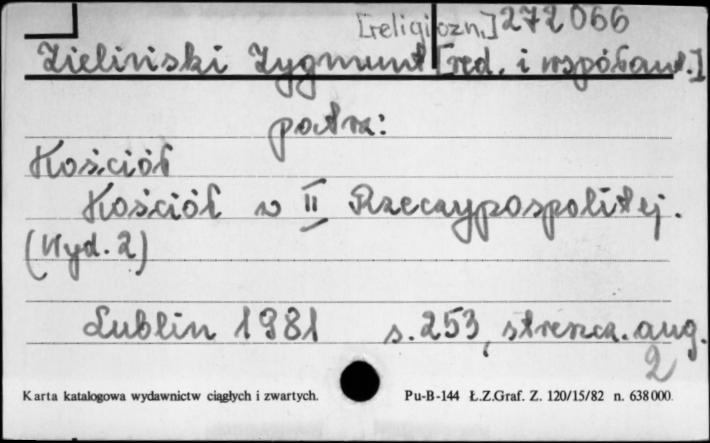 [religiozn.] 272066
Zieliński Zygmunt [red. i współaut.]
patrz:
Kościół
Kościół w II Rzeczypospolitej.
(Wyd. 2)
Lublin 1981 s. 253, streszcz. ang.
2
Karta katalogowa wydawnictw ciągłych i zwartych. Pu-B-144 Ł.Z.Graf. Z. 120/15/82 n. 638000.